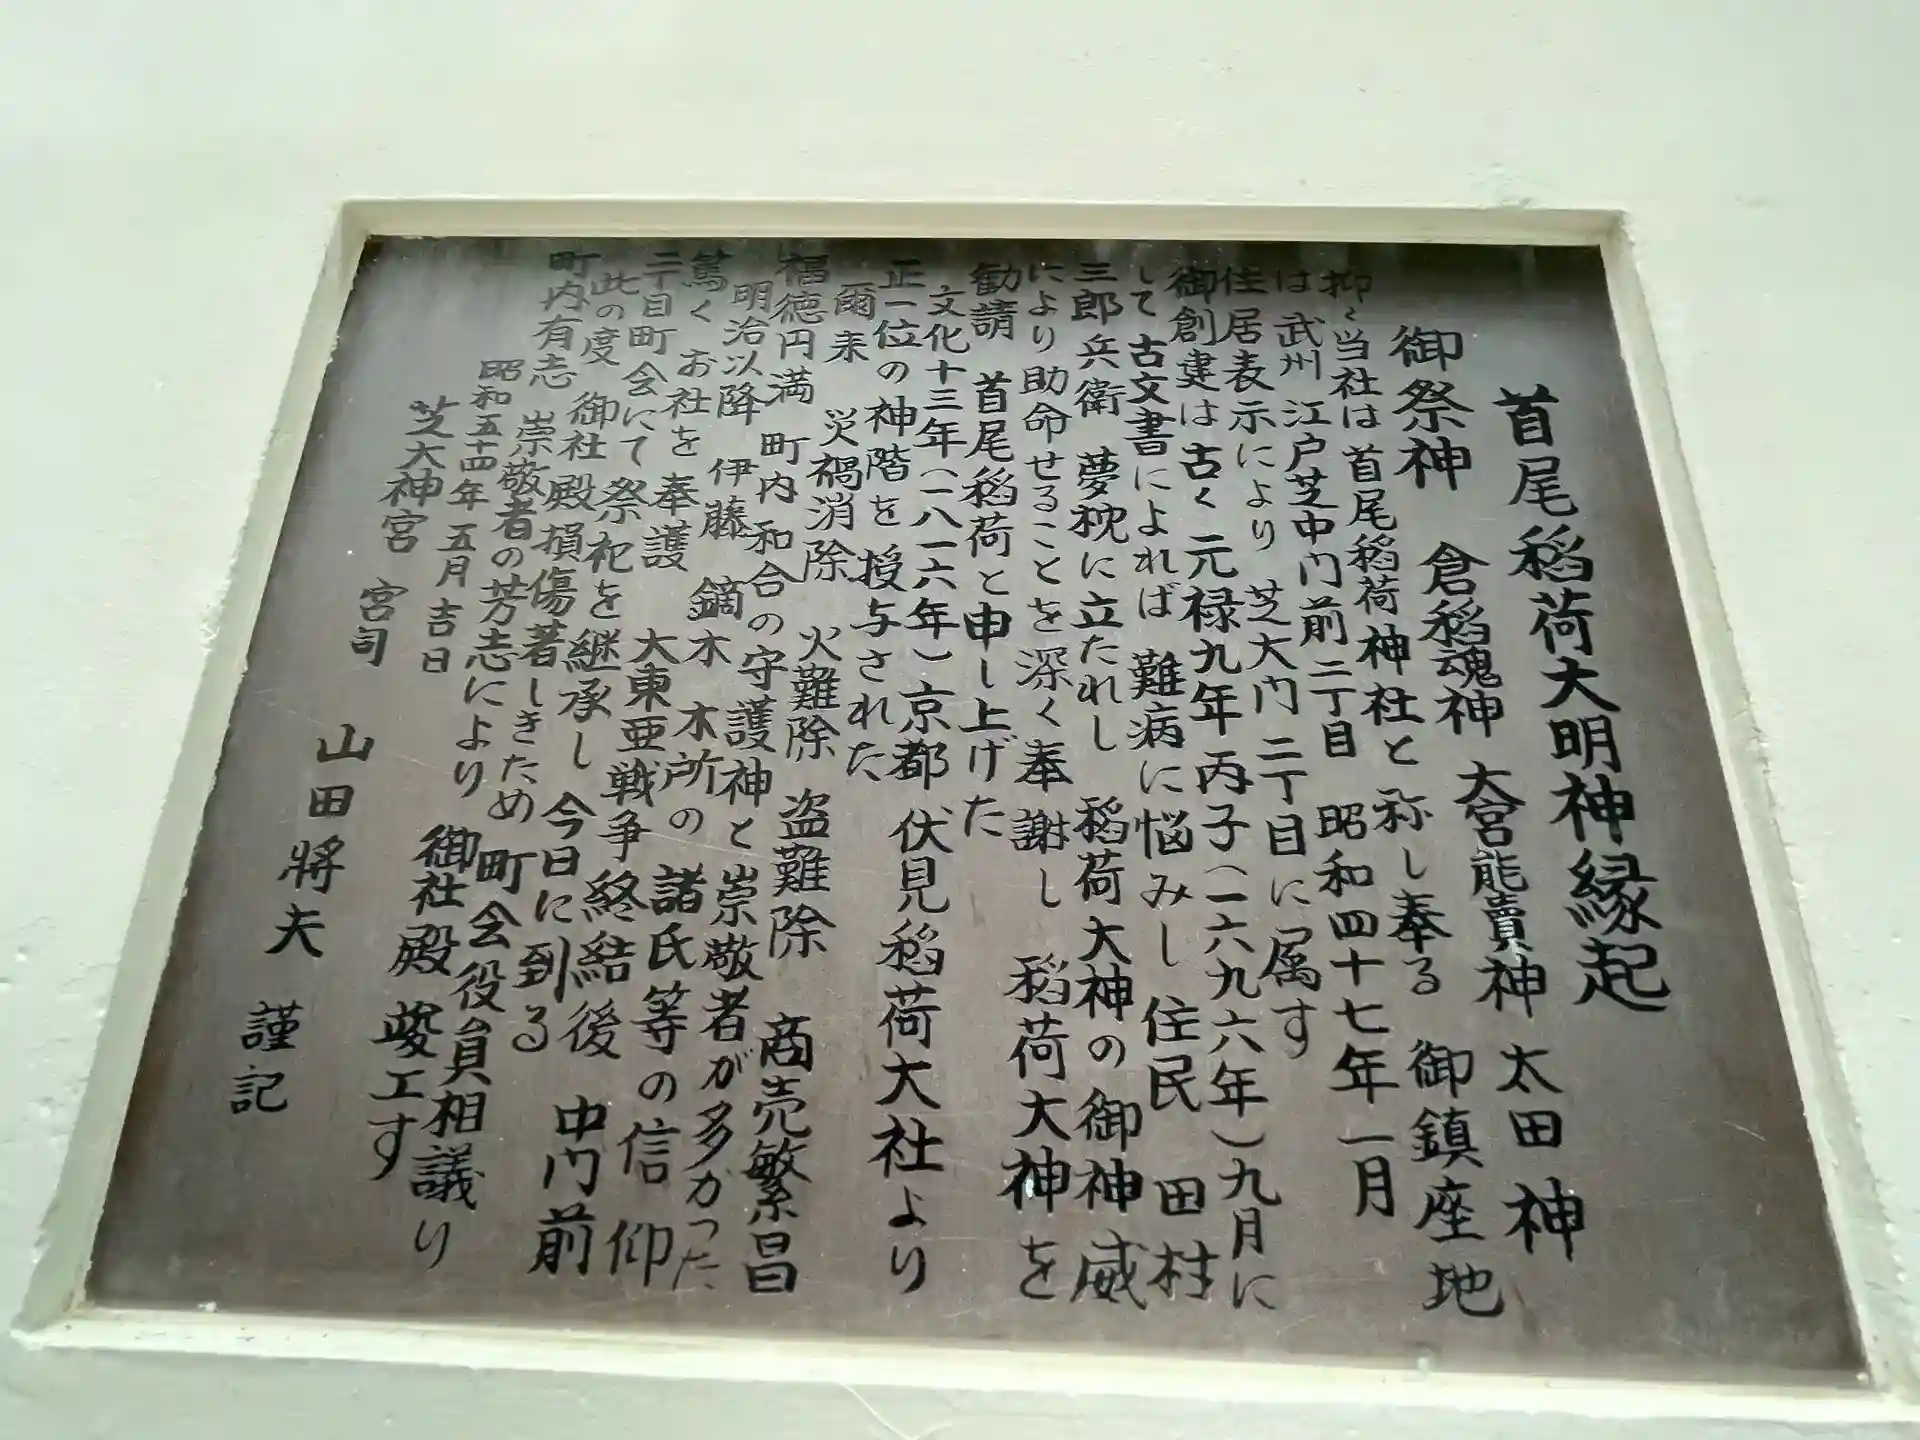 首尾稲荷大明神縁起
御祭神 倉稲魂神 大宮能賣神 太田神
抑々当社は首尾稲荷神社と称し奉る 御鎮座地
は武州江戸芝中門前二丁目 昭和四十七年一月
住居表示により 芝大門二丁目に属す
御創建は古く元禄九年丙子(一六九六年)九月に
して古文書によれば 難病に悩みし 住民 田村
三郎兵衛 夢枕に立たれし 稲荷大神の御神威
により助命せることを深く奉謝し 稲荷大神を
勧請 首尾稲荷と申し上げた
文化十三年(一八一六年)京都 伏見稲荷大社より
正一位の神階を 授与された
爾来 災禍消除 火難除 盗難除 商売繁昌
福徳円満 町内和合の守護神と崇敬者が多かった
明治以降 伊藤 鏑木 木所の 諸氏等の信仰
篤く お社を奉護 大東亜戦争終結後 中門前
二丁目町会にて祭祀を継承し 今日に到る
此の度 御社殿損傷著しきため 町会役員相議り
町内有志 崇敬者の芳志により 御社殿 竣工す
昭和五十四年 五月吉日
芝大神宮 宮司 山田將夫 謹記